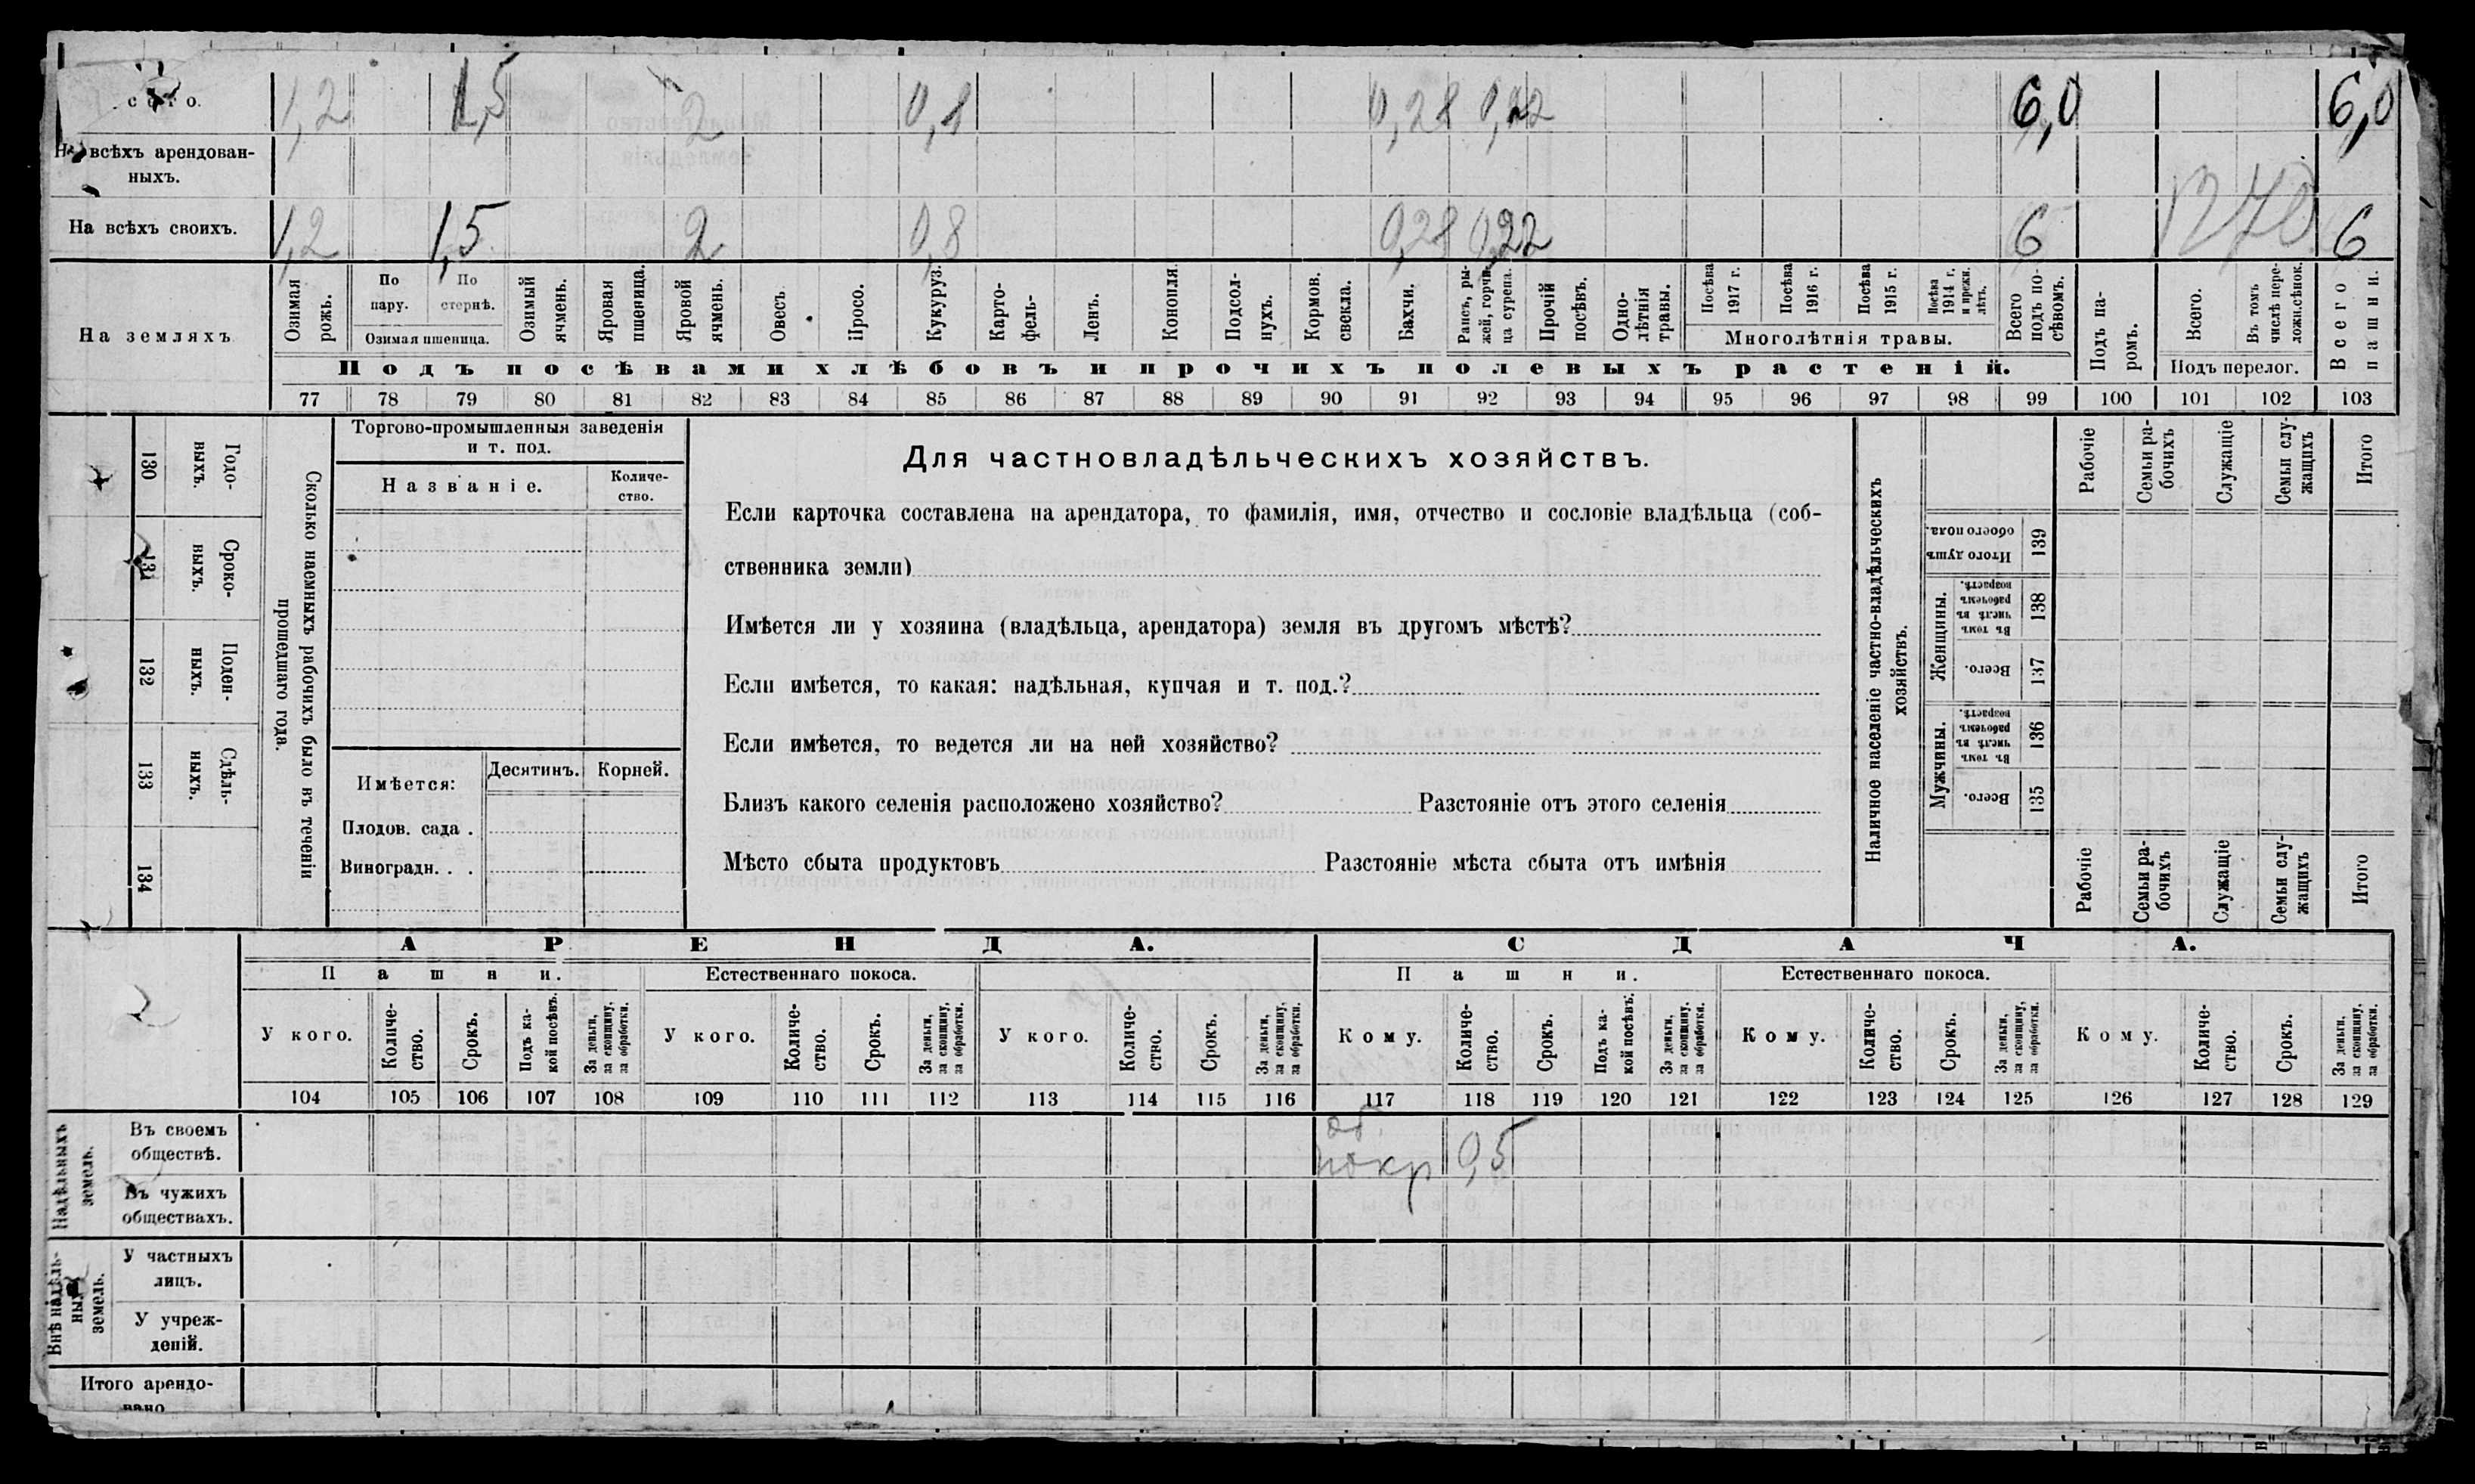 с е г о. 1,2 1,5 2 0,8 0,28 0,22 6,0 6,0
На всѣхъ арендован-
ныхъ.
На всѣхъ своихъ. 1,2 1,5 2 0,8 0,28 0,22 6 6
На земляхъ
Озимая рожь.
По пару.
По стернѣ.
Озимая пшеница.
Озимый ячмень.
Яровая пшеница.
Яровой ячмень.
Овесъ.
Просо.
Кукуруз.
Карто-
фель-
Ленъ.
Конопля.
Подсол-
нухъ.
Кормов.
свекла.
Бахчи.
Рапсъ, ры-
жей, горчи-
ца сурепа.
Прочій
посѣвъ.
Одно-
лѣтнія
травы.
Посѣва
1917 г.
Посѣва
1916 г.
Посѣва
1915 г.
Посѣва
1914 г.
и прежн.
лѣтъ.
Многолѣтнія травы.
Всего
подъ по-
сѣвомъ.
Подъ па-
ромъ.
Всего.
Въ томъ
числѣ пере-
ложн.сѣнок.
Подъ перелог.
Всего
пашни.
Подъ посѣвами хлѣбовъ и прочихъ полевыхъ растеній.
77 78 79 80 81 82 83 84 85 86 87 88 89 90 91 92 93 94 95 96 97 98 99 100 101 102 103
130 Годо-
ныхъ.
131 Сроко-
ныхъ.
132 Поден-
ныхъ.
133 Сдѣль-
ныхъ.
134
Сколько наемныхъ рабочихъ было въ теченіи
прошедшаго года.
Торгово-промышленныя заведенія
и т. под.
Названіе.
Количе-
ство.
Имѣется: Десятинъ. Корней.
Плодов. сада .
Виноградн. . .
Для частновладѣльческихъ хозяйствъ.
Если карточка составлена на арендатора, то фамилія, имя, отчество и сословіе владѣльца (соб-
ственника земли)
Имѣется ли у хозяина (владѣльца, арендатора) земля въ другомъ мѣстѣ?
Если имѣется, то какая: надѣльная, купчая и т. под.?
Если имѣется, то ведется ли на ней хозяйство?
Близъ какого селенія расположено хозяйство? Разстояніе отъ этого селенія
Мѣсто сбыта продуктовъ Разстояніе мѣста сбыта отъ имѣнія
Наличное населеніе частно-владѣльческихъ
хозяйствъ.
Рабочіе
Семьи ра-
бочихъ
Служащіе
Семьи слу-
жащихъ
Итого
Итого душъ
обоего пола.
139
Женщины.
Въ томъ
числѣ въ
рабочемъ
возрастѣ.
138
Всего.
137
Мужчины.
Въ томъ
числѣ въ
рабочемъ
возрастѣ.
136
Всего.
135
Рабочіе
Семьи ра-
бочихъ
Служащіе
Семьи слу-
жащихъ
Итого
АРЕНДА. СДАЧА.
Пашни. Естественнаго покоса. Пашни. Естественнаго покоса.
У кого.
Количе-
ство.
Срокъ.
Подъ ка-
кой посѣвъ.
За деньги,
за скопщину,
за обработки.
У кого.
Количе-
ство.
Срокъ.
За деньги,
за скопщину,
за обработки.
У кого.
Количе-
ство.
Срокъ.
За деньги,
за скопщину,
за обработки.
Кому.
Количе-
ство.
Срокъ.
Подъ ка-
кой посѣвъ.
За деньги,
за скопщину,
за обработки.
Кому.
Количе-
ство.
Срокъ.
За деньги,
за скопщину,
за обработки.
Кому.
Количе-
ство.
Срокъ.
За деньги,
за скопщину,
за обработки.
104 105 106 107 108 109 110 111 112 113 114 115 116 117 118 119 120 121 122 123 124 125 126 127 128 129
Надѣльныхъ
земель.
Въ своемъ
обществѣ.
0,5
Въ чужихъ
обществахъ.
Внѣ надѣль-
ныхъ
земель.
У частныхъ
лицъ.
У учреж-
деній.
Итого арендо-
вано